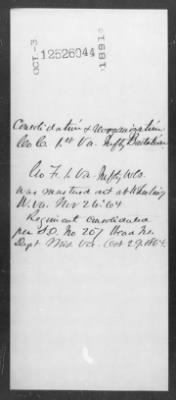 OCT.-3
12526044
1891
Consolidation & reorganization
Co C. 1st Va. Infty Battalion
Co F. 1 Va. Infty Vols
was mustered out at Wheeling
W. Va. Nov 26 '64
Regiment consolidated
per S.O. No 207
Dept Oct 29. 1864